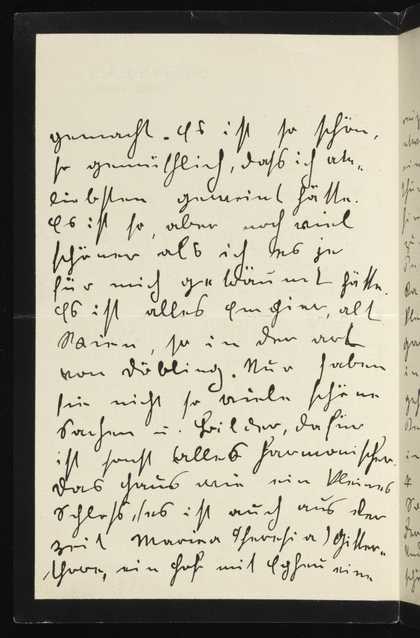 gemacht. Es ist so schön,
so gemüthlich, daß ich am
liebsten geweint hätte.
Es ist so, aber noch viel
schöner als ich es je
für mich geträumt hätte.
Es ist alles Empier, alt
Wien, so in der art
von Döbling. Nur haben
sie nicht so viele schöne
Sachen u. Bilder, dafür
ist sonst alles harmonischer.
Das Haus wie ein kleines
Schloß, (es ist auch aus der
zeit Maria Theresia) Gitter-
thore, ein Hof mit Epheu eine